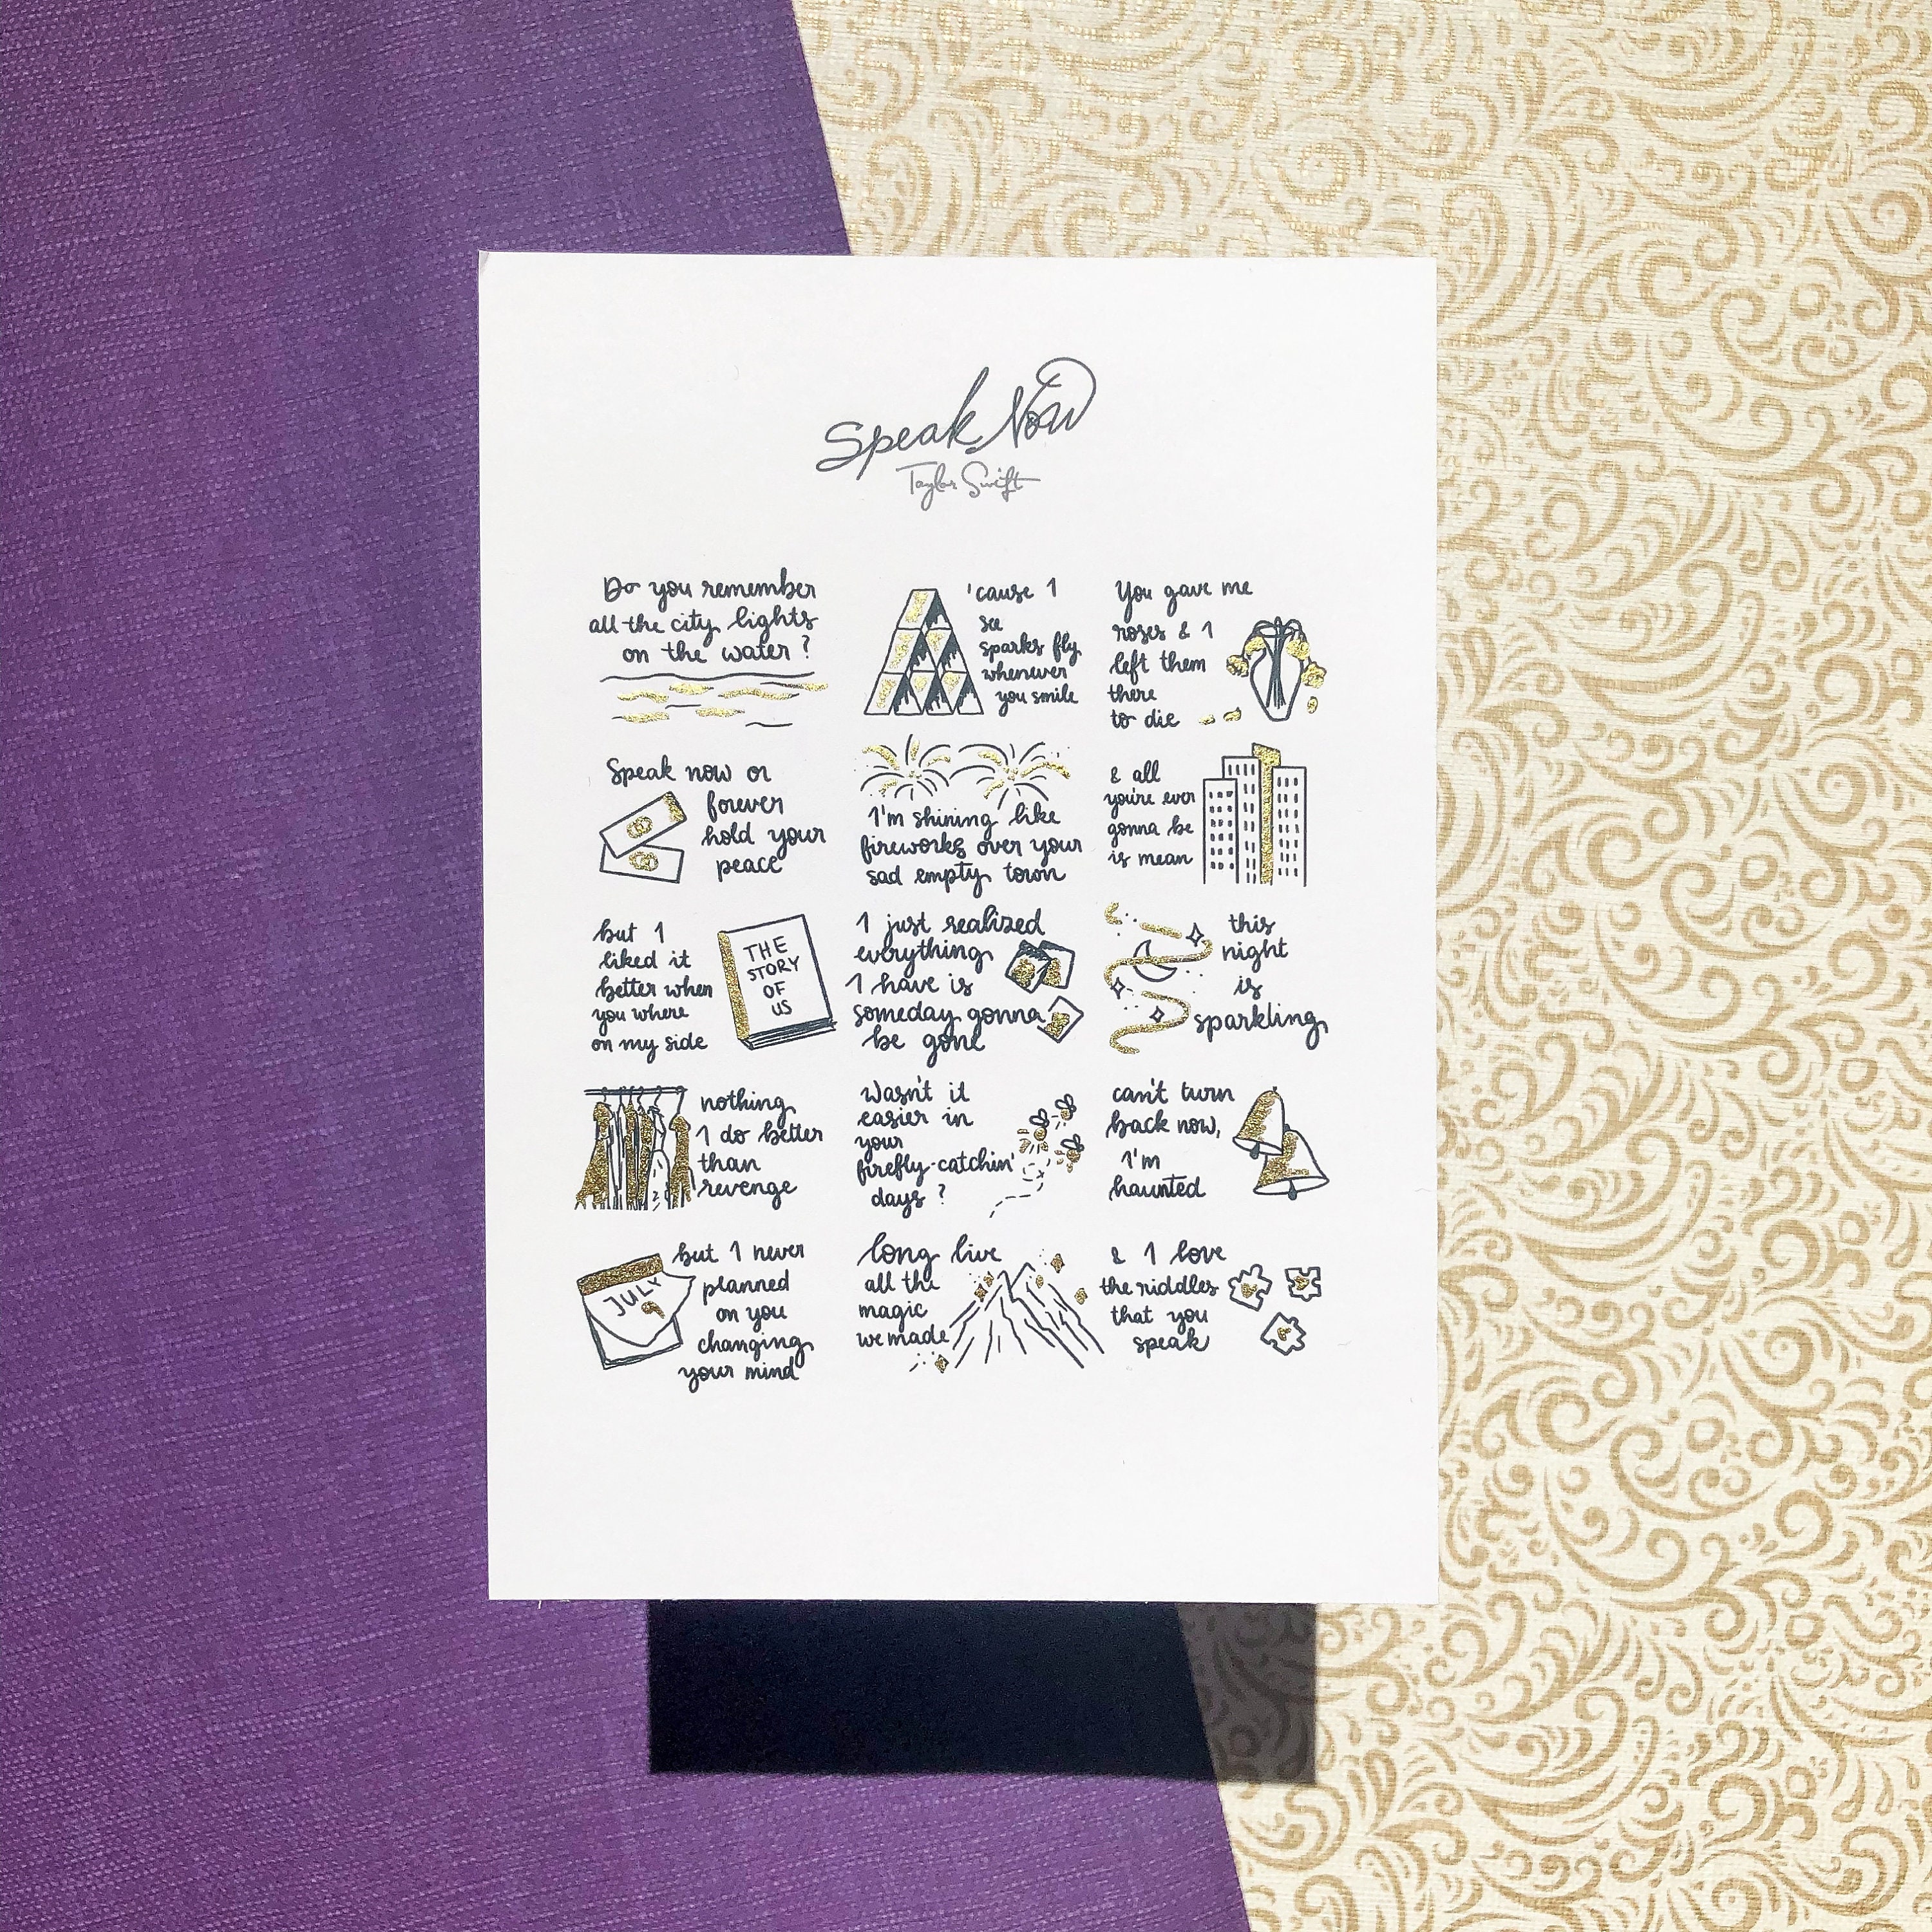 Speak Now
Taylor Swift
Do you remember
all the city lights
on the water?
'cause I
see
sparks fly
whenever
you smile
You gave me
roses & I
left them
there
to die
Speak now or
forever
hold your
peace
I'm shining like
fireworks over your
sad empty town
& all
you're ever
gonna be
is mean
but I
liked it
better when
you where
on my side
THE
STORY
OF
US
I just realized
everything
I have is
someday gonna
be gone
this
night
is
sparkling
nothing
I do better
than
revenge
Wasn't it
easier in
your
firefly-catchin'
days?
can't turn
back now,
I'm
haunted
JULY
9
but I never
planned
on you
changing
your mind
long live
all the
magic
we made
& I love
the riddles
that you
speak